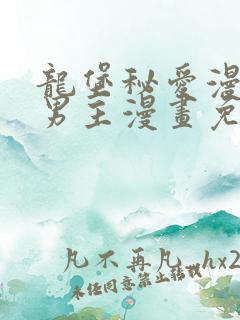 龍堡秘愛漫
男主漫畫免
凡不再凡 hx2
未经同意禁止转载